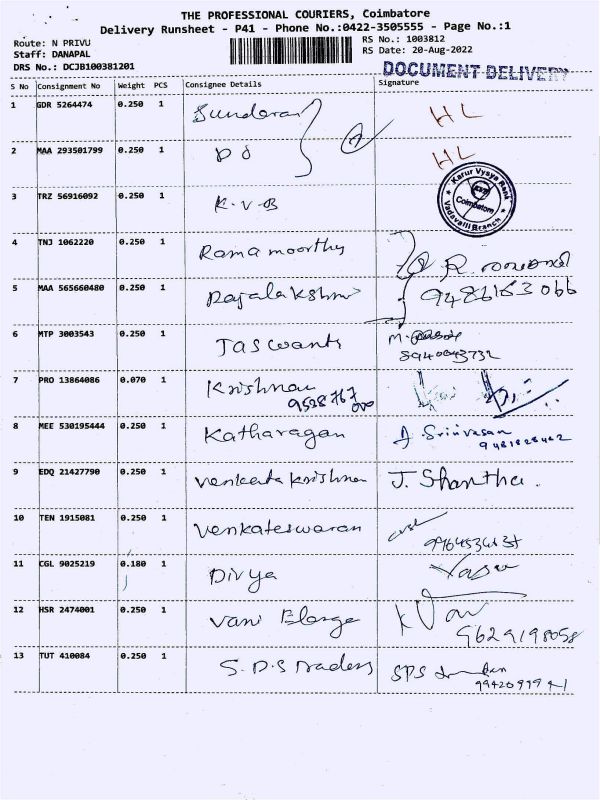 THE PROFESSIONAL COURIERS, Coimbatore
Delivery Runsheet - P41 - Phone No.:0422-3505555 - Page No.:1
Route: N PRIVU
RS No.: 1003812
Staff: DANAPAL
RS Date: 20-Aug-2022
DRS No.: DCJB100381201
DOCUMENT DELIVERY
S No Consignment No Weight PCS Consignee Details Signature
1 GDR 5264474 0.250 1 Sundaran HL
2 MAA 293501799 0.250 1 DO HL
Karur Vysya Bank
Coimbatore
Vadavalli Branch
3 TRZ 56916092 0.250 1 K.V.B
4 TNJ 1062220 0.250 1 Rama moorthy R.
5 MAA 565660480 0.250 1 Rajalakshmi 9486153066
6 MTP 3003543 0.250 1 Jaswanth M.
8940043732
7 PRO 13864086 0.070 1 Krishnan
9528767000
8 MEE 530195444 0.250 1 Katharagan A. Srinivasan
9 EDQ 21427790 0.250 1 Venkata Krishnan J. Shantha.
10 TEN 1915081 0.250 1 Venkateswaran
11 CGL 9025219 0.180 1 Divya
12 HSR 2474001 0.250 1 Vani Elango K Vani
9629198058
13 TUT 410084 0.250 1 S.P.S Traders SPS